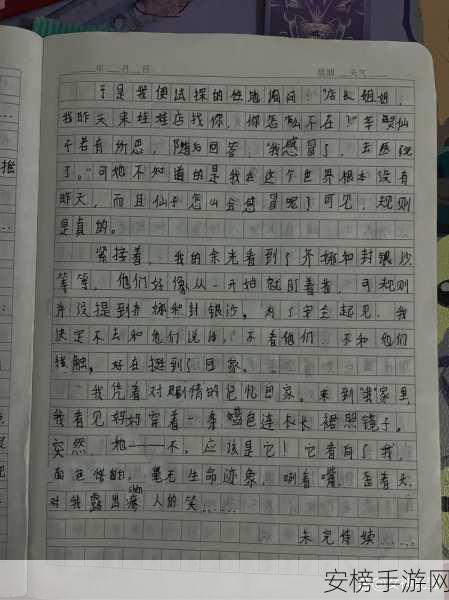 年 月 日 星期 天气
于是我便试探的性地询问："店长姐姐，
我昨天来娃娃店找你，你怎么不在？"辛灵仙
子若有所思，随后回答，"我感冒了，去医院
了。"可她不知道的是我在这个世界根本没有
昨天，而且仙子怎么会感冒呢？可见，规则
是真的。
紧接着，我的余光看到了齐娜和封银沙
等等，他们好像从一开始就盯着我，可规则
并没提到齐娜和封银沙，为了安全起见，我
决定不去和他们说话，不看他们，不和他们
接触，好在挺到了回家。
我凭着对剧情的记忆回家。来到"我"家里，
我看见妈妈穿着一条褐色连衣长裙照镜子。
突然，她——不，应该是它！它看向了我，
面色惨白，毫无生命迹象，咧着嘴，歪着头，
shèn
对我露出瘆人的笑……
未完待续……
安榜手游网